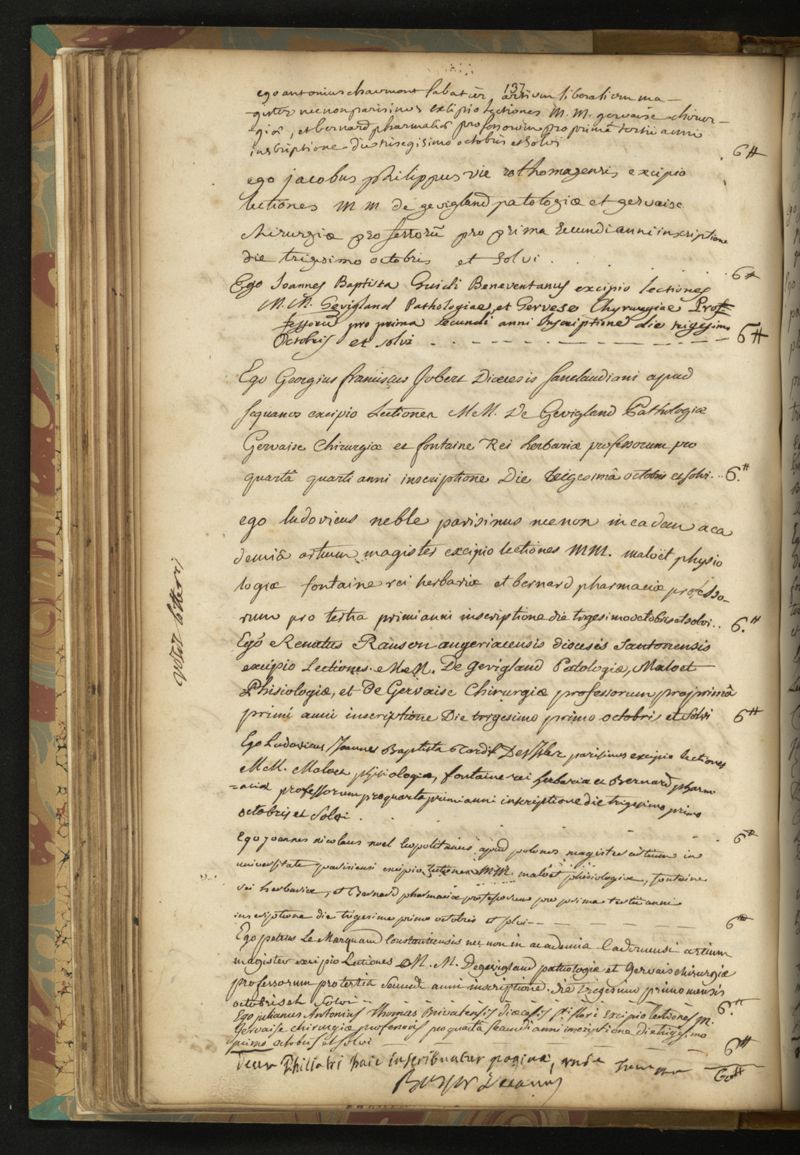 137
ego antonius chaumont sabatier, artium liberalium ma-
gister necnon parisinus excipio lectiones M. M. gervaise chirur-
giæ, et bernard pharmaciæ professorum pro prima tertii anni
inscriptione die trisegisimo octobris et solvi 6#
ego jacobus philippus vie rothomagensis excipio
lectiones M M de gevigland patologiæ et gervaise
chirurgiæ professorū pro prima secundi anni inscriptione
die trigesimo octobris et solvi . . . . . 6#
Ego Joannes Baptista Guidi Beneventanus excipio lectiones
M. M. Gevigland Pathologiae, et Gervese Chyrurgiae Prof-
fessorū pro prima secundi anni Inscriptione die trigesimo
Octobris et solvi - - - - - - - 6#
Ego Georgius franciscus Jobert Diœcesis sanclaudiani apud
sequanos excipio Lectiones M M. De Gevigland Pathologiæ
Gervaise Chirurgiæ et fontaine Rei herbariæ professorum pro
quartâ quarti anni inscriptione Die trigesimâ octobris et solvi .. 6.#
ego ludovicus neble parisinus necnon in eadem aca
demiâ artium magister excipio lectiones MM. maloët physio
logiæ fontaine rei herbariæ et bernard pharmaciæ professo-
rum pro tertia primi anni inscriptione die trigesimo octobris et solvi.. 6.#
Ego Renatus Ranson angeriacensis diocesis Santonensis
excipio Lectiones. M. M. De Gevigland Patologiæ, Maloet
Phisiologiæ, et De Gervaise Chirurgiæ professorum pro primâ
primi anni inscriptione Die trigesimo primo octobris et solvi 6#
Ego Ludovicus Joannes Baptista parisinus excipio lectiones
MM. Maloet phisiologiæ, fontaine rei herbariæ et Bernard pharm
-aciæ professorum pro quarta primi anni inscriptione die trigesimo primo
octobris et solvi .
6#
Ego joannes nicolaus noel leopolitanus apud polonos magister artium in
universitate parisiensi excipio lectiones MM. maloët phisiologiæ, fontaine
rei herbariæ, et Bernard pharmaciæ professorum pro prima tertii anni
inscriptione die trigesimo primo octobris et solvi - - 6#
Ego petrus Le Marquand Constantiensis nec non in academia Cadomensi artium
magister excipio Lectiones M. M. De gevigland pathologiæ et Gervais chirurgiæ
professorum pro tertiâ secundi anni inscriptione. die trigesimo primo mensis
octobris et solvi 6.#
Ego julianus Antonius Thomas Brivatensis diœcesis Excipio lectiones M.
Gervaise chirurgiæ professoris pro quarta secundi anni inscriptione die trigesimo
primo octobris et solvi 6#
decem Philiatri hac inscribuntur pagina, unde summa 60#
Decanus